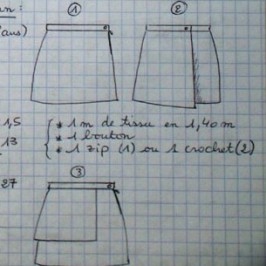 un :
① ②
ans)
1,5
* 1 m de tissu en 1,40 m
13
* 1 bouton
* 1 zip (1) ou 1 crochet (2)
27
③